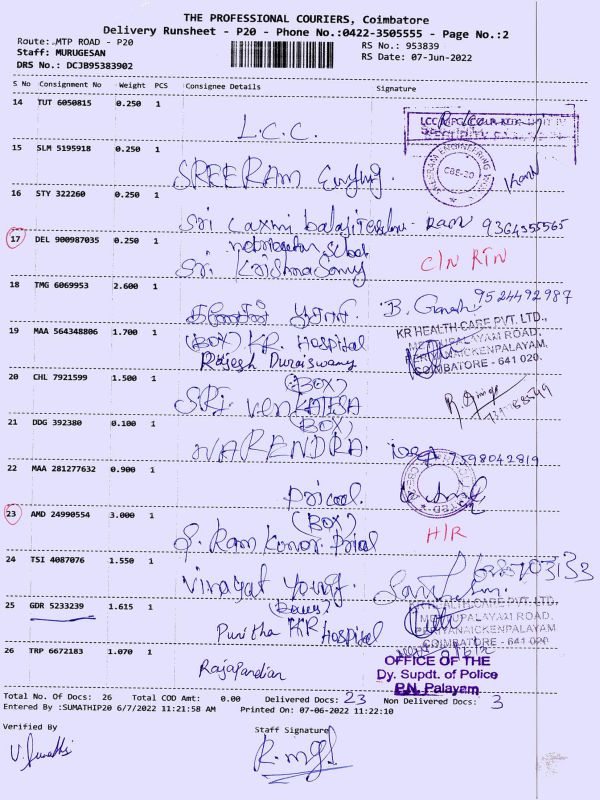 THE PROFESSIONAL COURIERS, Coimbatore
Delivery Runsheet - P20 - Phone No.:0422-3505555 - Page No.:2
Route: MTP ROAD - P20
RS No.: 953839
Staff: MURUGESAN
RS Date: 07-Jun-2022
DRS No.: DCJB95383902
S No Consignment No Weight PCS Consignee Details Signature
14 TUT 6050815 0.250 1
L.C.C.
15 SLM 5195918 0.250 1
SREERAM
CBE-20
16 STY 322260 0.250 1
Sri Laxmi balaji Ram 9364355565
17 DEL 900987035 0.250 1
Sri Krishnasamy C/N RTN
18 TMG 6069953 2.600 1
B. Ganesh 9524492987
19 MAA 564348806 1.700 1
(BOX) KR. Hospital
Rajesh Duraiswamy
KR HEALTH CARE PVT. LTD.,
METTUPALAYAM ROAD,
PERIYANAICKENPALAYAM
COIMBATORE - 641 020.
20 CHL 7921599 1.500 1
(BOX)
SRI VENKATESA
21 DDG 392380 0.100 1
(BOX)
NARENDRA
22 MAA 281277632 0.900 1
Pricol
23 AMD 24990554 3.000 1
(BOX)
S. Ram Konar. Pricol H/R
24 TSI 4087076 1.550 1
Vinayak
25 GDR 5233239 1.615 1
Punitha KR Hospital
KR HEALTH CARE PVT. LTD.,
METTUPALAYAM ROAD,
PERIYANAICKENPALAYAM
COIMBATORE - 641 020
26 TRP 6672183 1.070 1
Rajapandian
OFFICE OF THE
Dy. Supdt. of Police
P.N. Palayam
Total No. Of Docs: 26 Total COD Amt: 0.00 Delivered Docs: 23 Non Delivered Docs: 3
Entered By :SUMATHIP20 6/7/2022 11:21:58 AM Printed On: 07-06-2022 11:22:10
Verified By Staff Signature
V. Sumathi